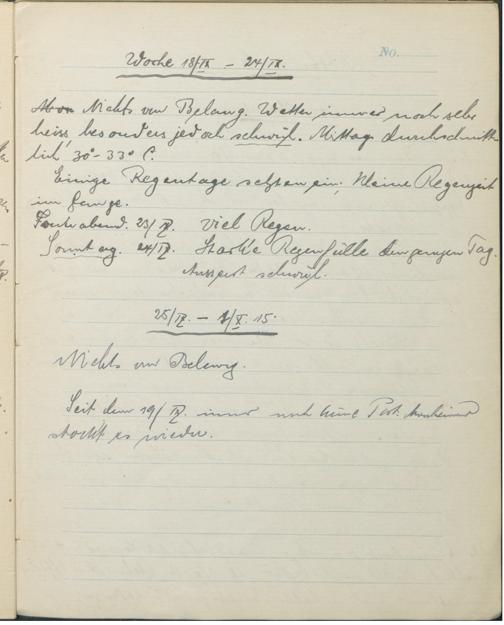 No.
Woche 18/IX – 24/IX.
Nichts von Belang. Wetter immer noch sehr
heiss, besonders jedoch schwül. Mittag durchschnitt-
lich 30°-33° C.
Einige Regentage setzen ein, kleine Regenzeit
im Gange.
Sonnabend. 23/IX. Viel Regen.
Sonntag. 24/IX. Starke Regenfälle den ganzen Tag.
Äusserst schwül.
25/IX. – 1/X. 15.
Nichts von Belang.
Seit dem 19/IX. immer noch keine Post.
stockt es wieder.